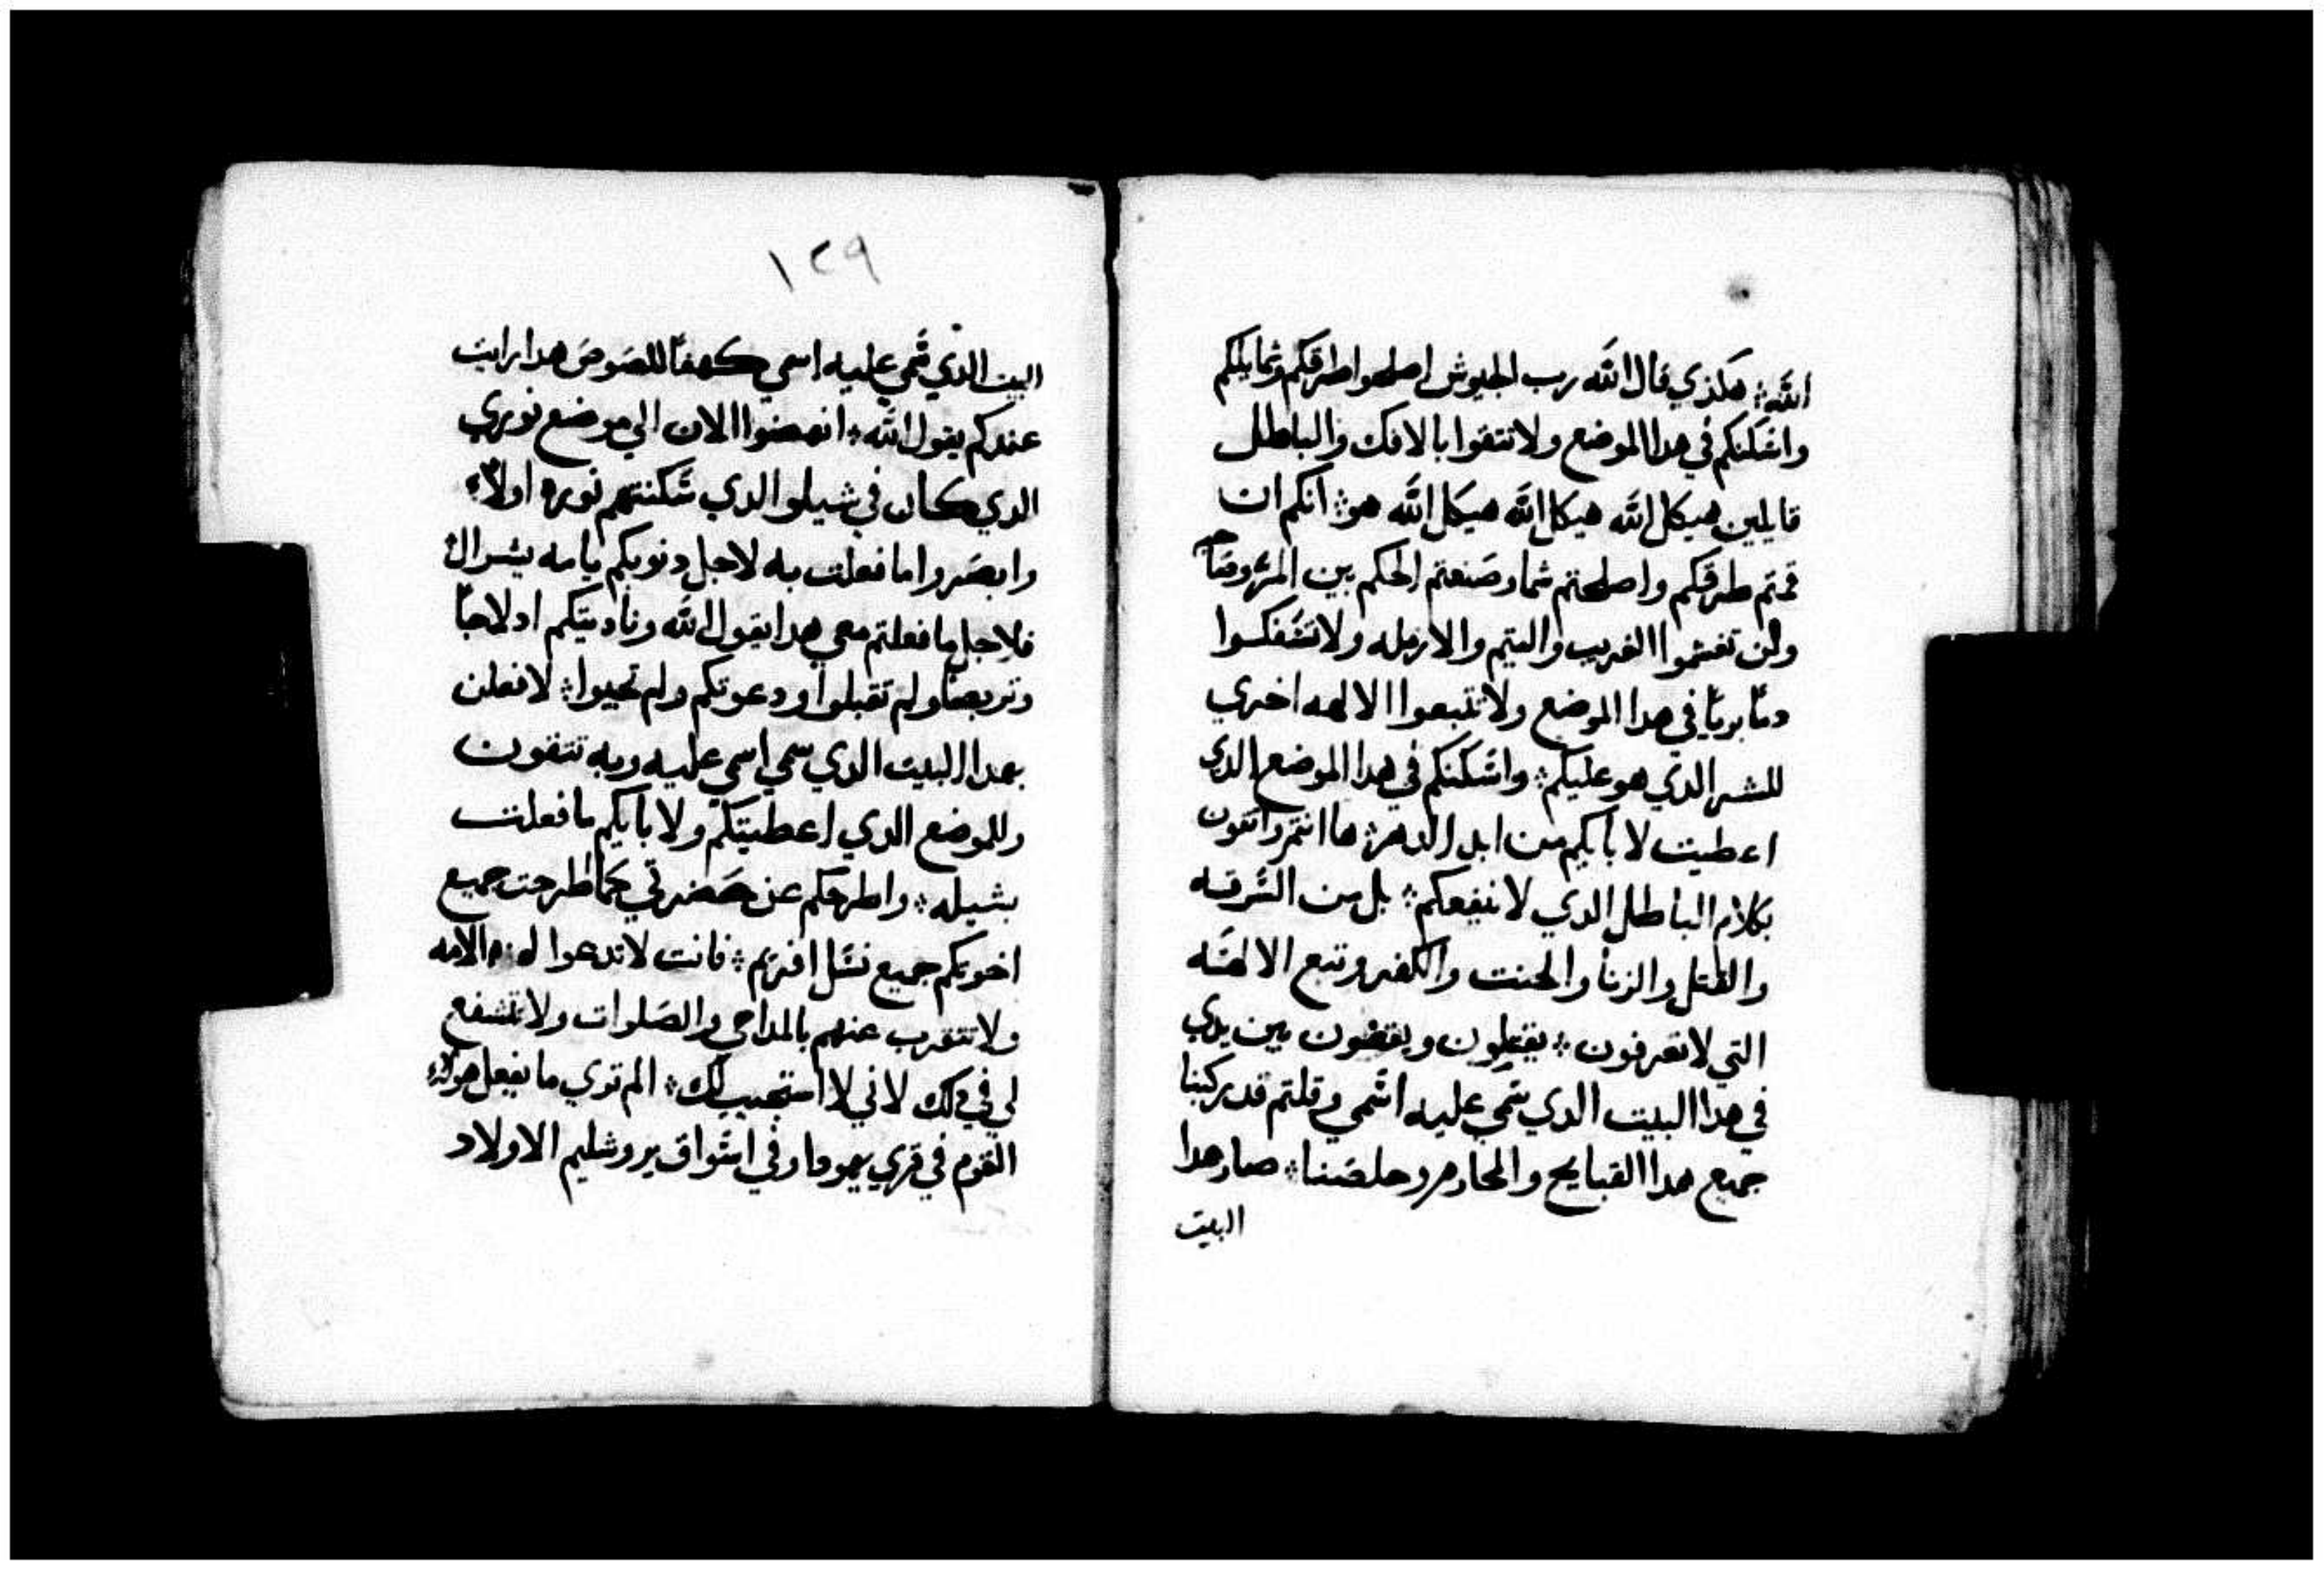 الله ۞ هكذي قال الله رب الجيوش اصلحوا طرقكم وشمايلكم
واسكنكم في هدا الموضع ولا تتقوا بالافك والباطل
قايلين هيكل الله هيكل الله هيكل الله هو ۞ انكم ان
قمتم طرقكم واصلحتم شما وصنعتم الحكم بين المر وصا
ولن تغشموا الغريب واليتيم والارمله ولا تسفكوا
دما بريا في هدا الموضع ولا تتبعوا الالهه اخري
للشر الدي هو عليكم ۞ واسكنكم في هدا الموضع الدي
اعطيت لابايكم من ابد الدهر ۞ ها انتم واتقون
بكلام الباطل الدي لا ينفعكم ۞ بل من السرقه
والقتل والزنا والحنت والكفر وتبع الالهه
التي لا تعرفون ۞ يقتلون ويقفون بين يدي
في هدا البيت الدي سمي عليه اسمي وقلتم قد ركبنا
جميع هدا القبايح والمحارم وخلصنا ۞ صار هدا
البيت
١٢٩
البيت الدي سمي عليه اسمي كهفا للصوص هدا رايت
عندكم يقول الله ۞ انهضوا الان الي موضع نوري
الدي كان في شيلوا الدي سكنتهم نوره اولا
وابصروا ما فعلت به لاجل دنوبكم يا مه يسرال
فلاجل ما فعلتم معي هدا يقول الله وناديتكم ادلاجا
وتربصا ولم تقبلوا ودعوتكم ولم تجيبوا ۞ لافعلن
بهدا البيت الدي سمي اسمي عليه وبه تتقون
وللموضع الدي اعطيتكم ولابايكم ما فعلت
بشيله ۞ واطرحكم عن حضرتي كما طرحت جميع
اخوتكم جميع نسل افريم ۞ فانت لا تدعوا لهدا الامه
ولا تتقرب عنهم بالمداحي والصلوات ولا تشفع
لي في دلك لاني لا استجيب لك ۞ الم تري ما يفعل هولاء
القوم في قري يهودا وفي اسواق يروشليم الاولاد